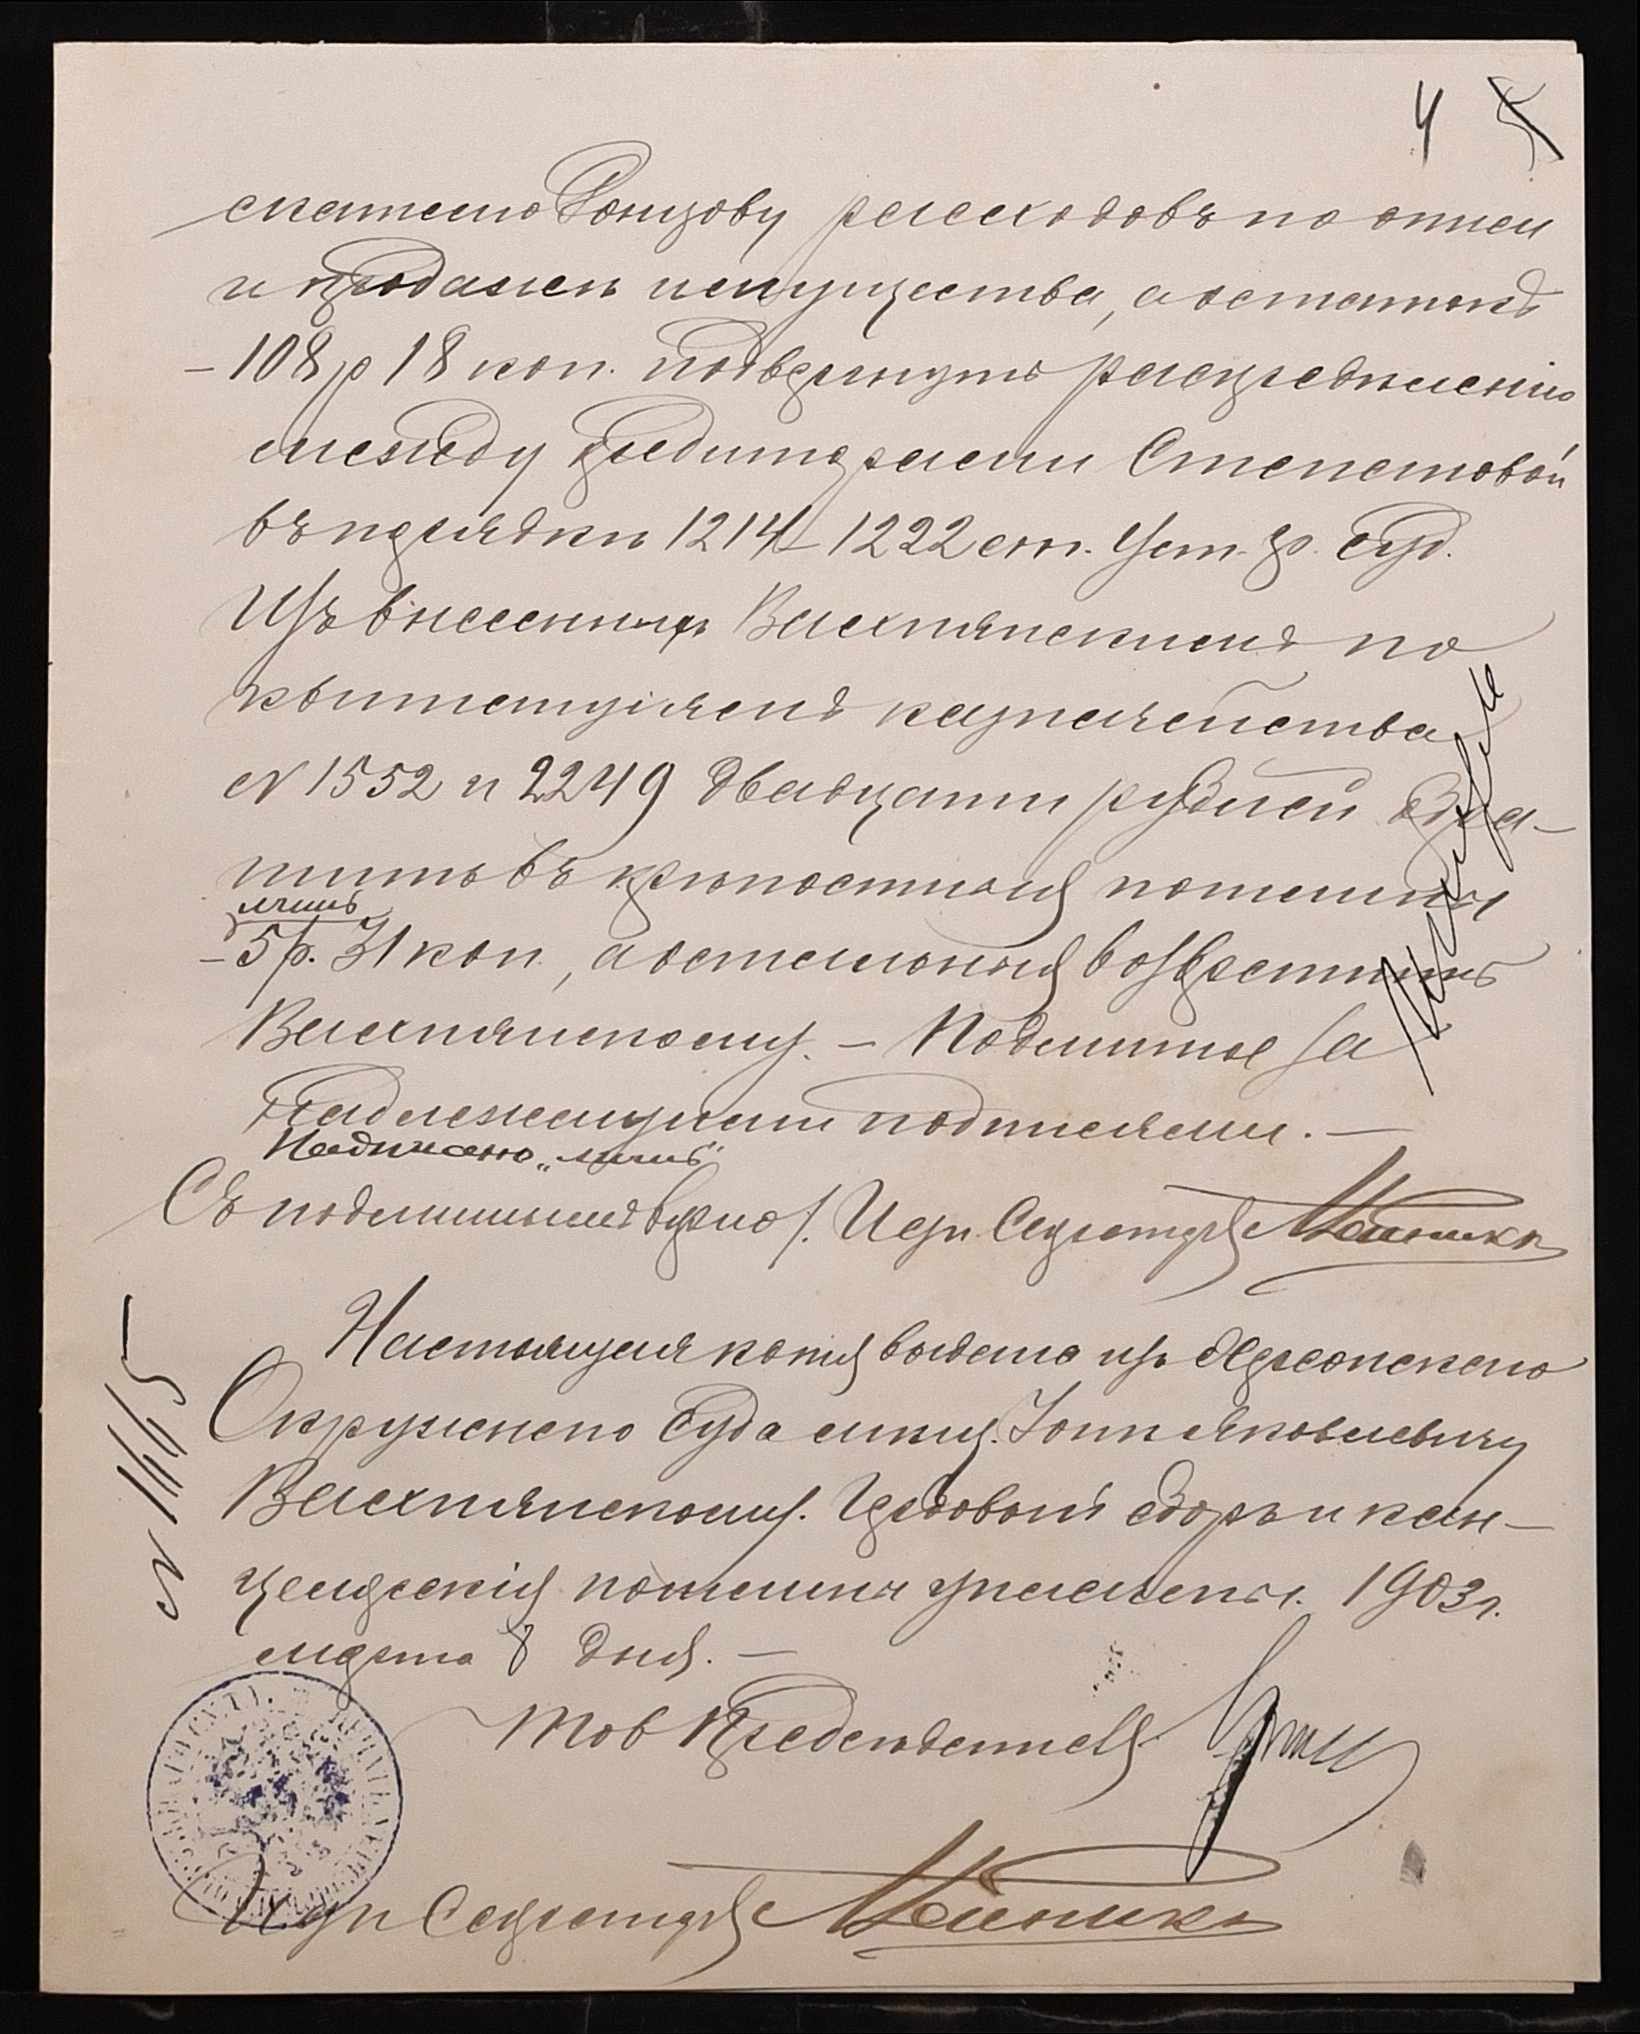 4
расходовъ по описи
и продажѣ имущества, а остатокъ
– 108 р 18 коп. подвергнуть распредѣленію
между кредиторами
въ порядкѣ 1214 – 1222 ст. Уст. гр. суд.
Изъ внесенныхъ Вахнянскимъ по
квитанціямъ казначейства
№ 1552 и 2249 двадцати рублей обра-
тить въ крѣпостныя пошлины
лишь
– 5 р. 31 коп, а остальныя возвратить
Вахнянскому. – Подлинное за
надлежащими подписями. –
Надписано „лишь“
Съ подлиннымъ вѣрно /. Секретаря
Настоящая копія выдана изъ Херсонскаго
Окружного Суда Яковлевичу
Вахнянскому. Гербовый сборъ и кан-
целярскія пошлины уплачены. 1903 г.
марта 8 дня. –
Тов Предсѣдателя
Секретаря